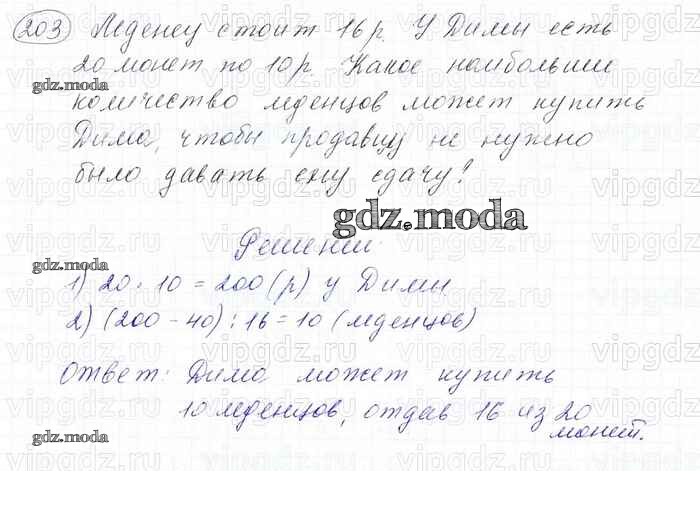 203) Леденец стоит 16 р. У Димы есть
20 монет по 10 р. Какое наибольшее
gdz.moda
количество леденцов может купить
Дима, чтобы продавцу не нужно
gdz.moda
было давать ему сдачу?
gdz.moda
Решение:
gdz.moda
1) 20 · 10 = 200 (р) у Димы
2) (200 - 40) : 16 = 10 (леденцов)
Ответ: Дима может купить
10 леденцов, отдав 16 из 20
монет.
gdz.moda